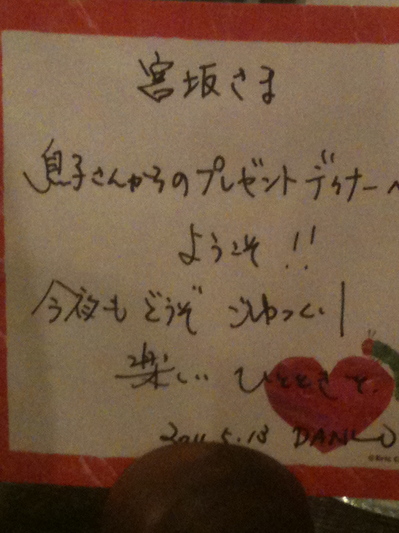 宮坂さま
息子さんからのプレゼントディナーへ
ようこそ!!
今夜もどうぞごゆっくり
楽しいひとときを.
2011.5.13 DANLO